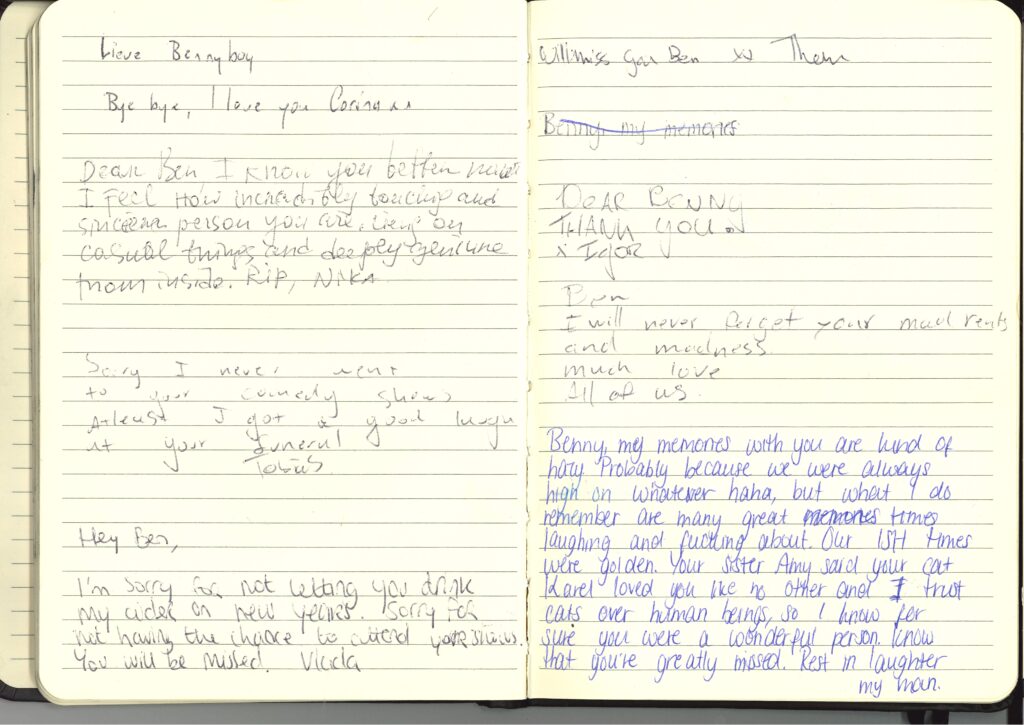 Lieve Bennyboy
Bye bye, I love you Corina xx
Dear Ben I know you better now
I feel how incredibly touching and
sincere person you are. Being on
casual things and deeply genuine
from inside. RIP, NIKA
Sorry I never went
to your comedy shows
Atleast I got a good laugh
at your funeral
Tobias
Hey Ben,
I'm sorry for not letting you drink
my cider on new years. Sorry for
not having the chance to attend your shows.
You will be missed.
Will miss you Ben xx Thom
Benny, my memories
DEAR BENNY
THANK YOU.
x IGOR
Ben
I will never forget your mad rents
and madness.
much love
All of us.
Benny, my memories with you are kind of
hazy Probably because we were always
high on whatever haha, but what I do
remember are many great memories times
laughing and fucking about. Our ISH times
were golden. Your sister Amy said your cat
Karel loved you like no other and I trust
cats over human beings, so I know for
sure you were a wonderful person. Know
that you're greatly missed. Rest in laughter
my man.